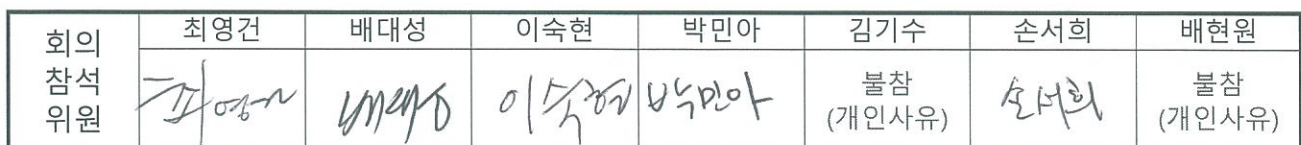 회의 참석 위원
최영건 배대성 이숙현 박민아 김기수 손서희 배현원
최영건 배대성 이숙현 박민아 불참 (개인사유) 손서희 불참 (개인사유)